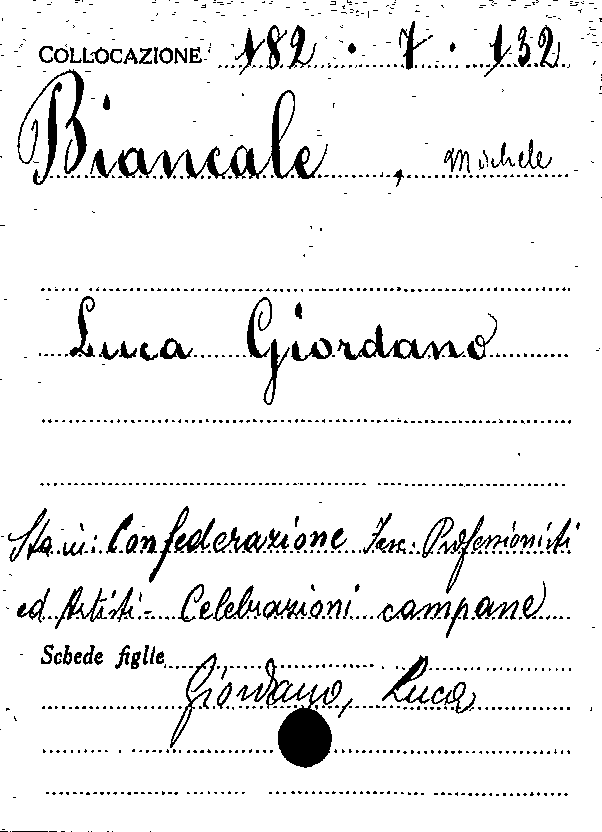 COLLOCAZIONE 182 . 7 . 132
Biancale , Michele
Luca Giordano
Sta in: Confederazione Fasc. Professionisti
ed Artisti - Celebrazioni campane
Schede figlie
Giordano, Luca